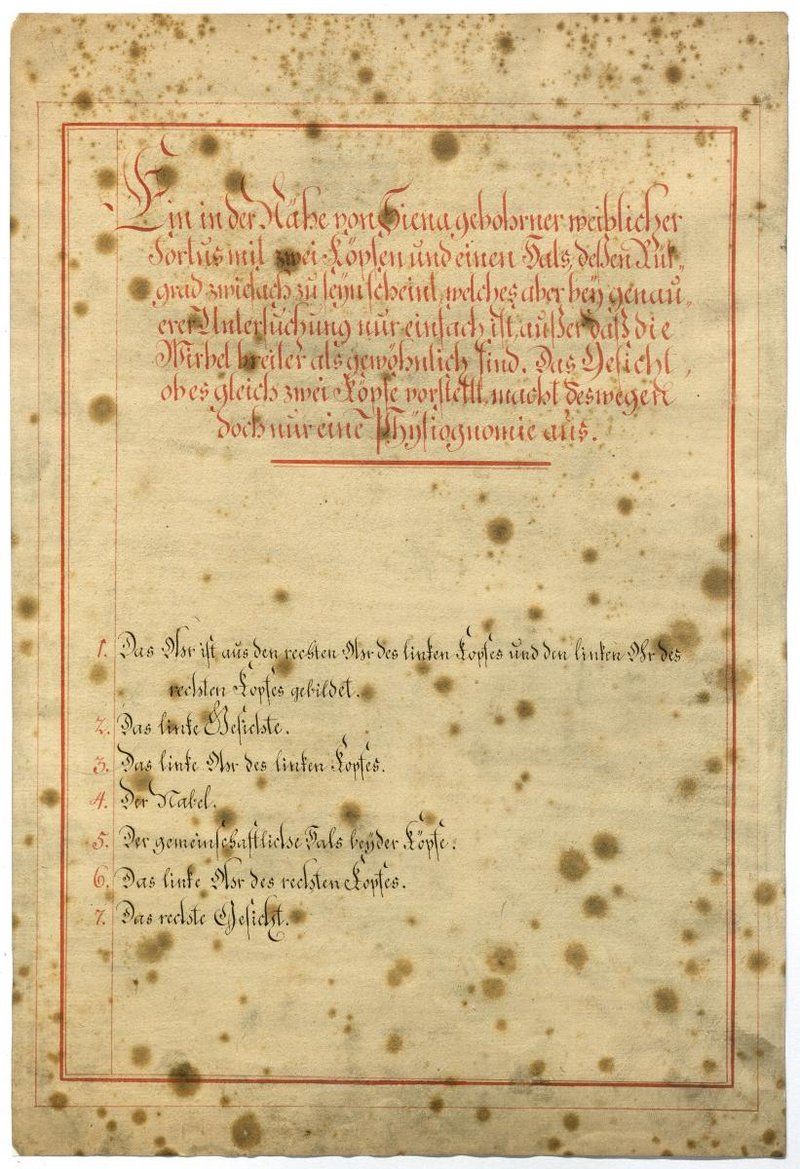 Ein in der Nähe von Siena gebohrner weiblicher
Foetus mit zwei Köpfen und einen Hals, deßen Rük„
grad zwiefach zu seyn scheint, welches aber bey genau„
erer Untersuchung nur einfach ist, außer daß die
Wirbel breiter als gewöhnlich sind. Das Gesicht,
ob es gleich zwei Köpfe vorstellt, macht deswegen
doch nur eine Physiognomie aus.
1. Das Ohr ist aus den rechten Ohr des linken Kopfes und den linken Ohr des
rechten Kopfes gebildet.
2. Das linke Gesichte.
3. Das linke Ohr des linken Kopfes.
4. Der Nabel.
5. Der gemeinschaftliche Hals beyder Köpfe.
6. Das linke Ohr des rechten Kopfes.
7. Das rechte Gesicht.